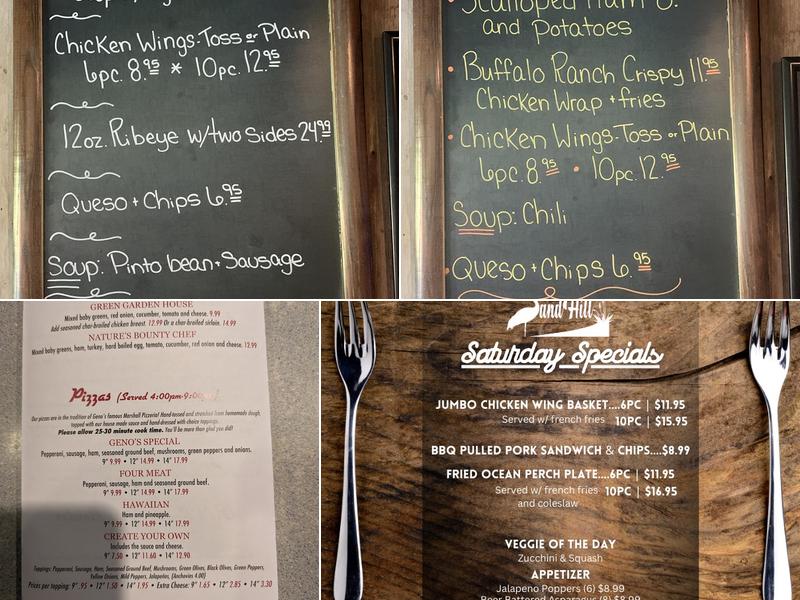 Chicken Wings-Toss or Plain
6pc. 8.95 * 10pc. 12.95
12oz. Ribeye w/two Sides 24.99
Queso + Chips 6.95
Soup: Pinto bean + Sausage
Scalloped Ham &
and Potatoes
• Buffalo Ranch Crispy 11.95
Chicken Wrap + fries
• Chicken Wings-Toss or Plain
6pc. 8.95 • 10pc. 12.95
Soup: Chili
• Queso + Chips 6.95
GREEN GARDEN HOUSE
Mixed baby greens, red onion, cucumber, tomato and cheese. 9.99
Add seasoned char-broiled chicken breast. 12.99 Or a char-broiled sirloin. 14.99
NATURE'S BOUNTY CHEF
Mixed baby greens, ham, turkey, hard boiled egg, tomato, cucumber, red onion and cheese. 12.99
Pizzas (Served 4:00pm-9:00
Our pizzas are in the tradition of Geno's famous Marshall Pizzeria! Hand-tossed and stretched from homemade dough,
topped with our house made sauce and hand-dressed with choice toppings.
Please allow 25-30 minute cook time. You'll be more than glad you did!
GENO'S SPECIAL
Pepperoni, sausage, ham, seasoned ground beef, mushrooms, green peppers and onions.
9" 9.99 • 12" 14.99 • 14" 17.99
FOUR MEAT
Pepperoni, sausage, ham and seasoned ground beef.
9" 9.99 • 12" 14.99 • 14" 17.99
HAWAIIAN
Ham and pineapple.
9" 9.99 • 12" 14.99 • 14" 17.99
CREATE YOUR OWN
Includes the sauce and cheese.
9" 7.50 • 12" 11.60 • 14" 12.90
Toppings: Pepperoni, Sausage, Ham, Seasoned Ground Beef, Mushrooms, Green Olives, Black Olives, Green Peppers,
Yellow Onions, Mild Peppers, Jalapeños, (Anchovies 4.00)
Prices per topping: 9" .95 • 12" 1.50 • 14" 1.95 • Extra Cheese: 9" 1.65 • 12" 2.85 • 14" 3.30
Sand Hill
Saturday Specials
JUMBO CHICKEN WING BASKET....6PC | $11.95
Served w/ french fries 10PC | $15.95
BBQ PULLED PORK SANDWICH & CHIPS....$8.99
FRIED OCEAN PERCH PLATE....6PC | $11.95
Served w/ french fries 10PC | $16.95
and coleslaw
VEGGIE OF THE DAY
Zucchini & Squash
APPETIZER
Jalapeno Poppers (6) $8.99
Beer Battered Asparagus (8) $8.99